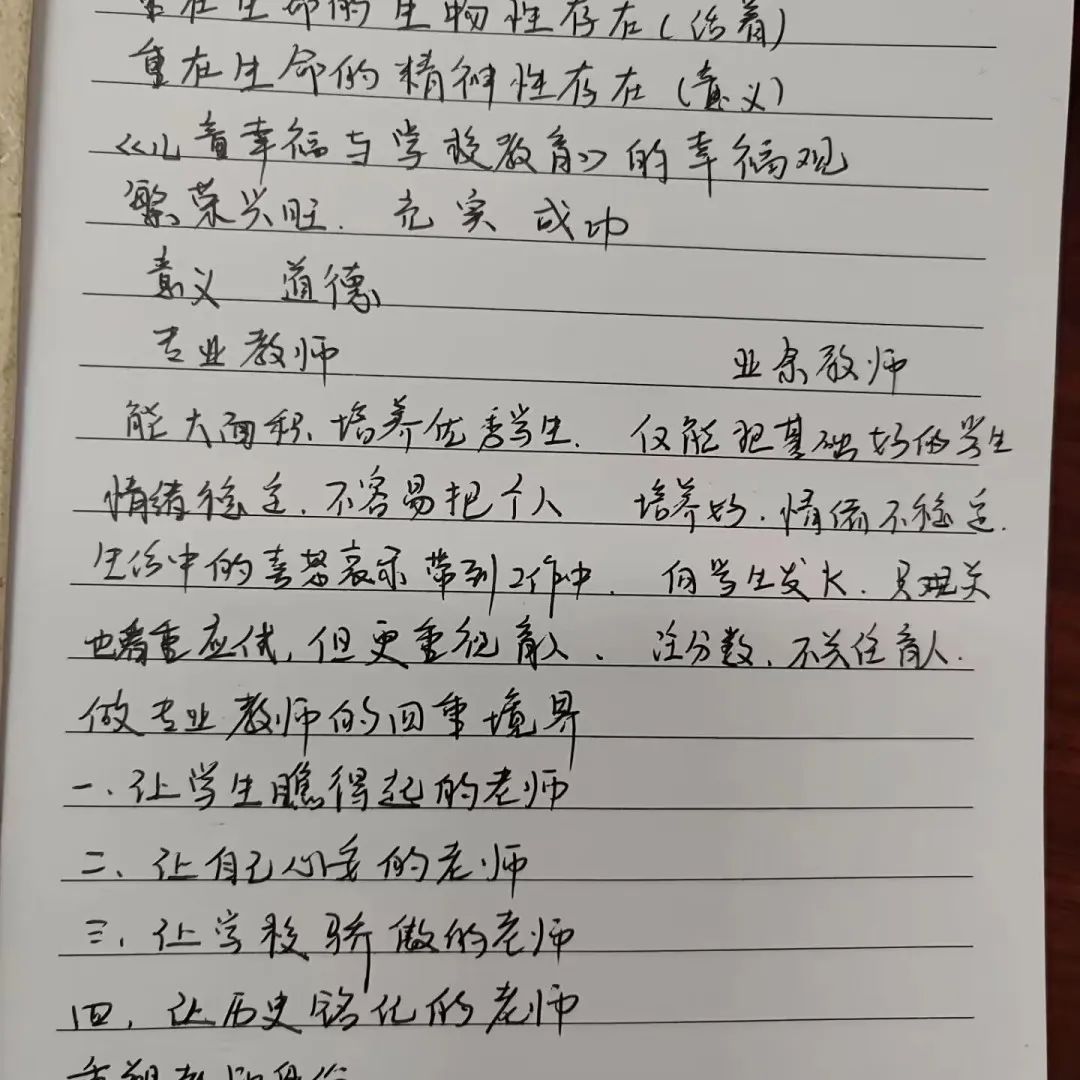 重在生命的生物性存在(活着)
重在生命的精神性存在(意义)
《儿童幸福与学校教育》的幸福观
繁荣兴旺. 充实 成功
意义 道德
专业教师 业余教师
能大面积培养优秀学生. 仅能把基础好的学生
情绪稳定.不容易把个人 培养好.情绪不稳定.
生活中的喜怒哀乐带到工作中. 向学生发火.只关
也看重应试,但更重视育人. 注分数.不关注育人.
做专业教师的四重境界
一.让学生瞧得起的老师
二、让自己心安的老师
三.让学校骄傲的老师
四.让历史铭记的老师
重塑教师身份